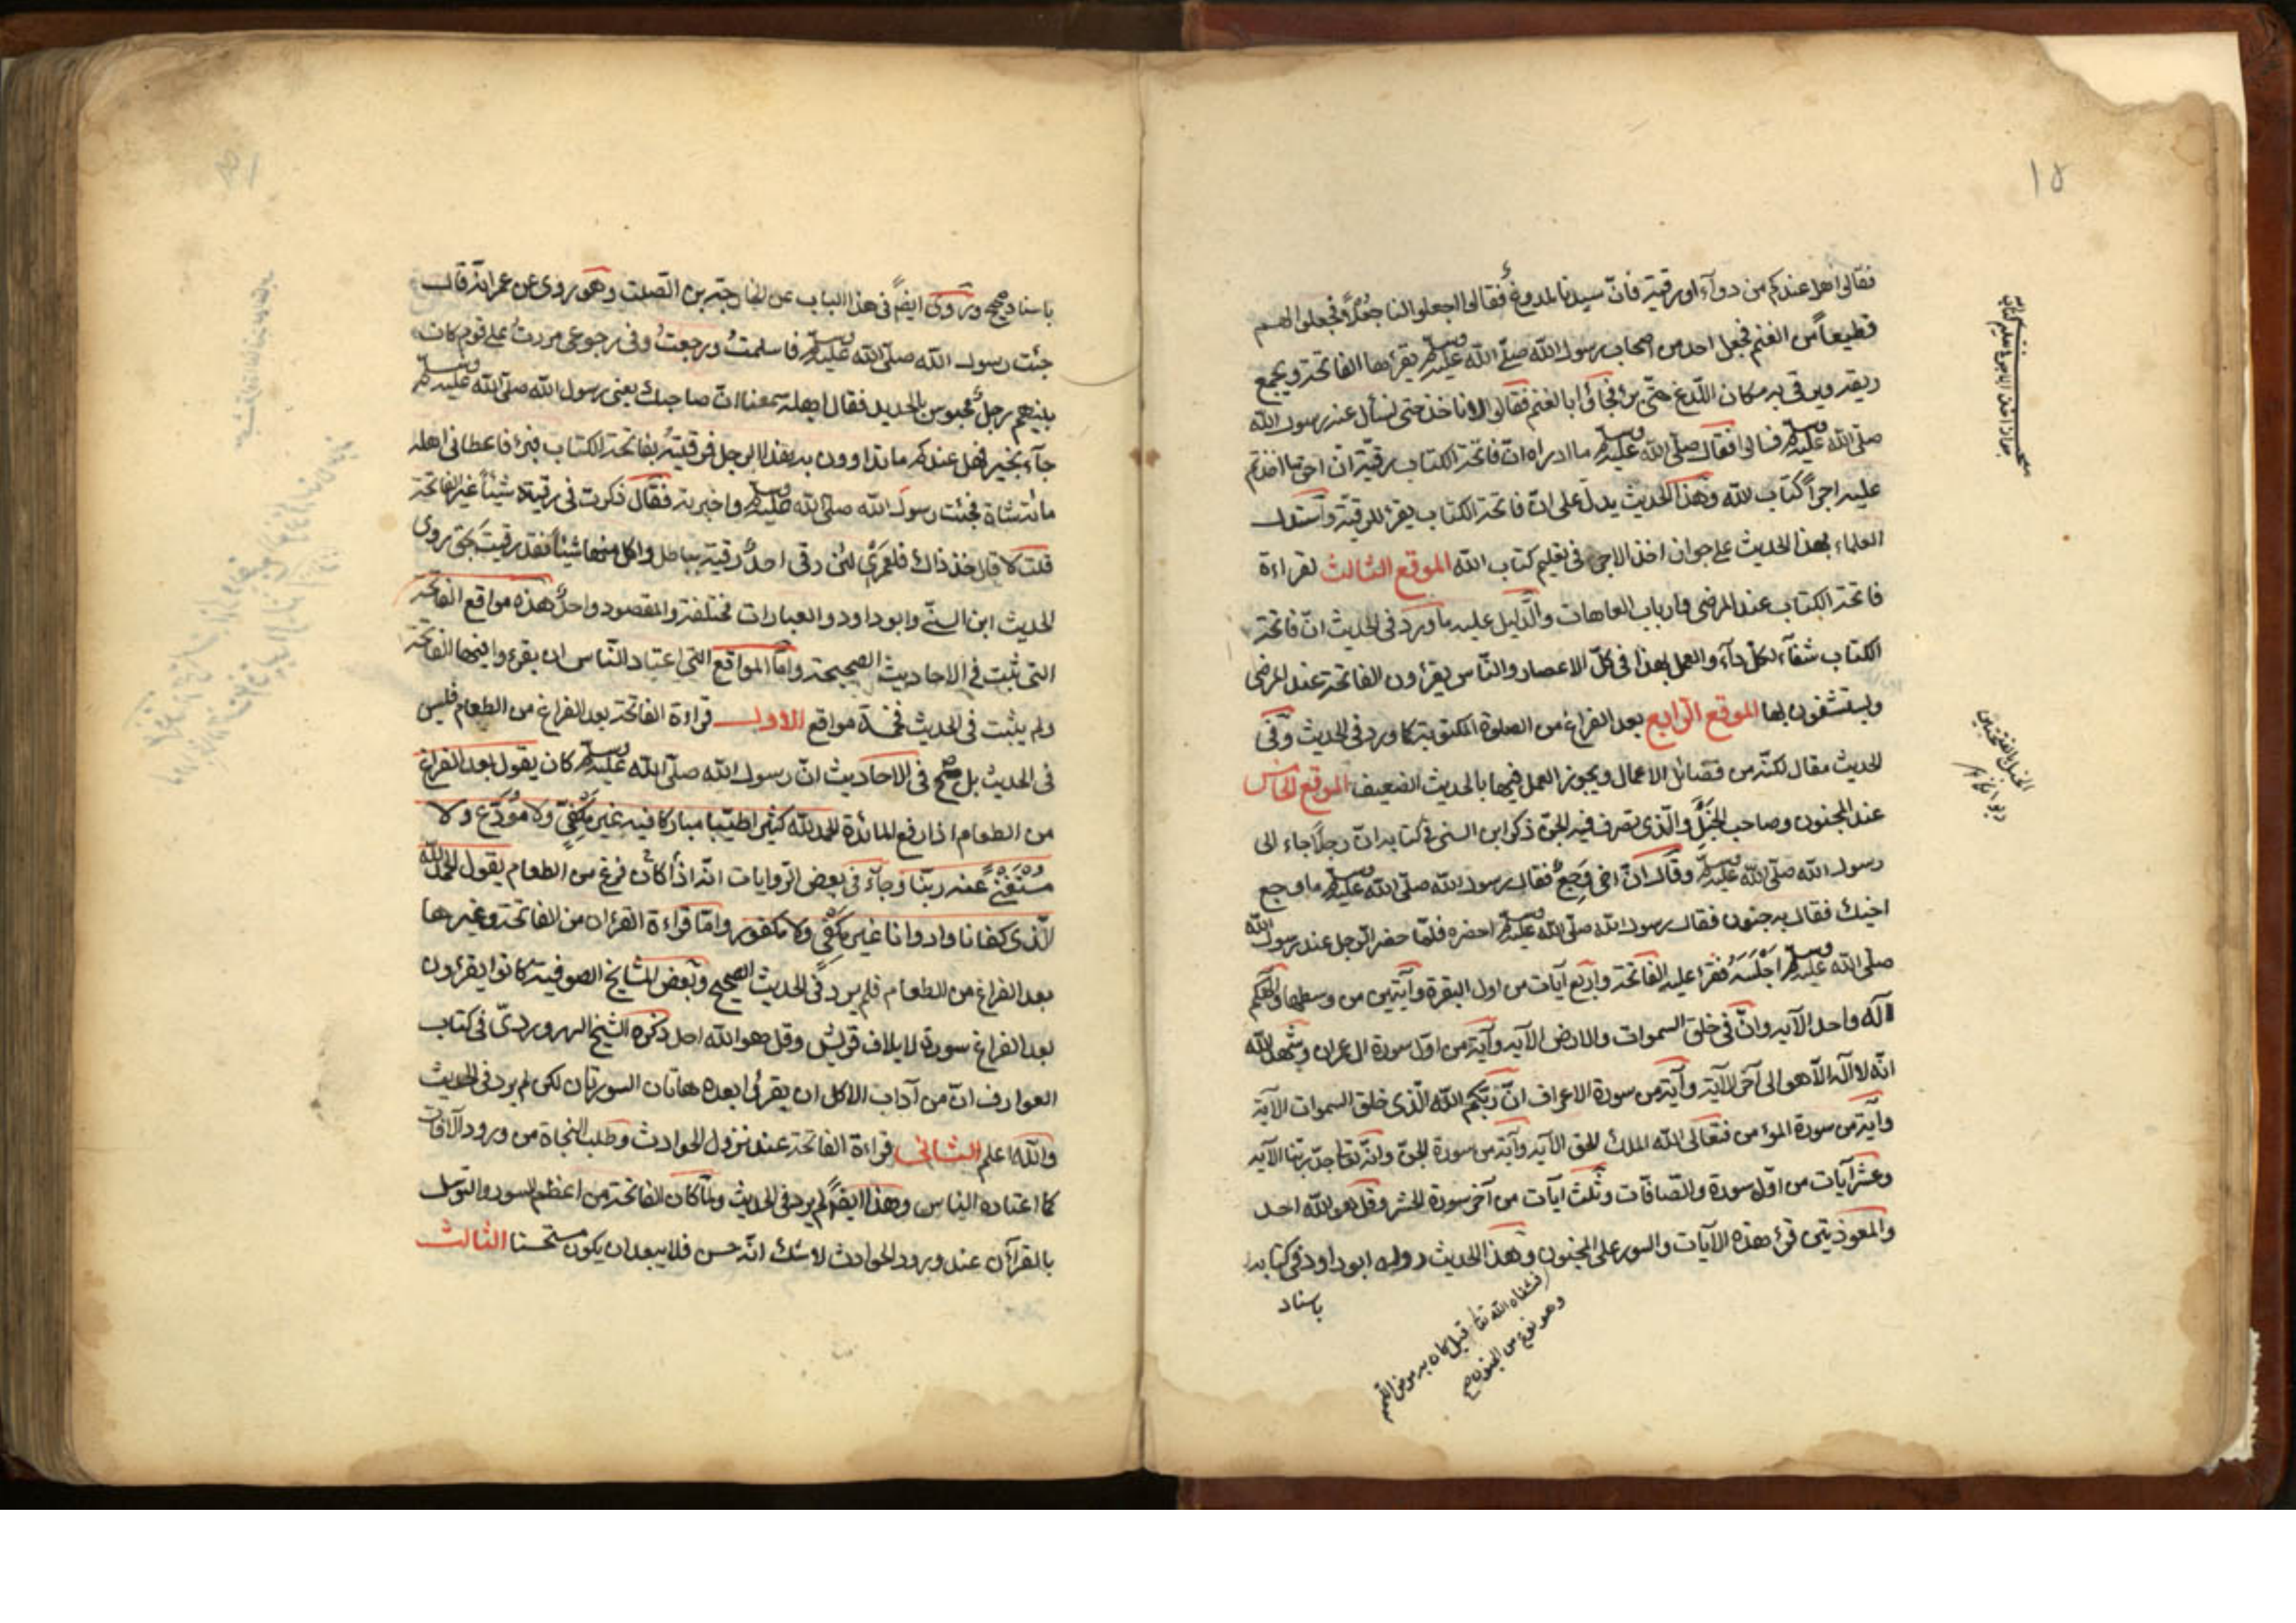 ١٥
فقالوا هل عندكم من دوآء او رقية فانّ سيدنا لمدوغ فقالوا اجعلوا لنا جُعْلاً فجعلوا لهم
قطيعاً من الغنم فجعل احد من اصحاب رسول الله صلّى الله عليه وسلم يقرأ بها الفاتحة ويجمع
ريقه ويرقى به مكان اللّدغ حتّى برئ فجاؤا بالغنم فقالوا لا ناخذ حتى نسأل عنه رسول الله
صلى الله عليه وسلم فسالوا فقال صلّى الله عليه وسلم ما ادراه انّ فاتحة الكتاب رقية انّ احق ما اخذتم
عليه اجراً كتاب الله وهذا الحديث يدل على انّ فاتحة الكتاب يقرأ للرقية واستدل
العلماء بهذا الحديث على جواز اخذ الاجر فى تعليم كتاب الله الموقع الثالث لقراءة
فاتحة الكتاب عند المرضى وارباب العاهات والدّليل عليه ما ورد فى الحديث انّ فاتحة
الكتاب شفآء لكلّ دآء والعمل بهذا فى كلّ الاعصار والنّاس يقرؤن الفاتحة عند المرضى
ويستشفون بها الموقع الرّابع بعد الفراغ من الصلوة المكتوبة كما ورد فى الحديث وفى
الحديث مقال لكنّه من فضائل الاعمال ويجوز العمل فيها بالحديث الضعيف الموقع الخامس
عند المجنون وصاحب الخَبَل والّذى تصرف فيه الجنّ ذكر ابن السنى فى كتابه انّ رجلاً جاء الى
رسول الله صلّى الله عليه وسلم وقال انّ اخى وَجِعٌ فقال رسول الله صلّى الله عليه وسلم ما وجع
اخيك فقال به جنون فقال رسول الله صلّى الله عليه وسلم احضره فلمّا حضر الرّجل عند رسول الله
صلّى الله عليه وسلم اجلسَه فقرأ عليه الفاتحة واربع آيات من اول البقرة وآيتين من وسطها والهكم
اله واحد الآيه وانّ فى خلق السموات والارض الآيه وآية من اوّل سورة ال عمران وشهد الله
انّه لا اله الّا هو الى آخر الآية وآية من سورة الاعراف انّ ربّكم الله الّذى خلق السموات الآية
وآية من سورة المؤمن فتعالى الله الملك الحق الآيه وآية من سورة الجنّ وانّه تعالى جدّ ربّنا الآيه
وعشر آيات من اوّل سورة والصّافّات وثلث آيات من آخر سورة الحشر وقل هو الله احد
والمعوذتين قرئ هذه الآيات والسور على المجنون وهذا الحديث رواه ابو داود فى كتابه
باسناد
باسناد صحيح وروى ايضاً فى هذا الباب عن خارجة بن الصّلت وهو روى عن عمر انّه قال
جئت رسول الله صلّى الله عليه وسلم فاسلمتُ ورجعتُ وفى رجوعى مررت على قوم كان
بينهم رجلٌ محبوس بالحديد فقال اهله سمعنا انّ صاحبك يعنى رسول الله صلّى الله عليه وسلم
جآء بخير فهل عندكم ما تداوون به هذا الرجل فرقيتُه بفاتحة الكتاب فبرئ فاعطانى اهله
مائة شاة فجئت رسول الله صلّى الله عليه وسلم واخبرته فقال ذكرت فى رقيتك شيئاً غير الفاتحة
قلت لا قال خذ ذاك فلعَمرى لئن رقى احدٌ رقية بباطل واكل منها شيئاً فقد رقيت بحق روى
الحديث ابن السنّى وابو داود والعبارات مختلفة والمقصود واحدٌ هذه مواقع الفاتحة
التى ثبت فى الاحاديث الصحيحة وامّا المواقع التى اعتاد النّاس ان يقرءوا فيها الفاتحة
ولم يثبت فى الحديث فخمسة مواقع الاول قراءة الفاتحة بعد الفراغ من الطعام فليس
فى الحديث بل صحّ فى الاحاديث انّ رسول الله صلّى الله عليه وسلم كان يقول بعد الفراغ
من الطعام اذا رفع المائدة الحمد لله كثيرا طيّبا مباركا فيه غير مكفىّ ولا مُودَّع ولا
مُسْتَغْنًى عنه ربّنا وجآء فى بعض الرّوايات انّه اذا كان فرغ من الطعام يقول الحمد لله
الّذى كفانا واروانا غير مكفى ولا مكفور وامّا قراءة القرءان من الفاتحة وغيرها
بعد الفراغ من الطعام فلم يرد فى الحديث الصحيح وبعض المشايخ الصوفية كانوا يقرؤن
بعد الفراغ سورة لايلاف قريش وقل هو الله احد ذكره الشيخ السهروردىّ فى كتاب
العوارف انّ من آداب الاكل ان يقرئ بعده هاتان السورتان لكن لم يرد فى الحديث
والله اعلم الثانى قراءة الفاتحة عند نزول الحوادث وطلب النجاة من ورود الآفات
كما اعتاده الناس وهذا ايضاً لم يرد فى الحديث ولمّا كان الفاتحة من اعظم السور والتوسل
بالقرآن عند ورود الحوادث لا شك انّه حسن فلا يبعد ان يكون مستحسنا الثالث